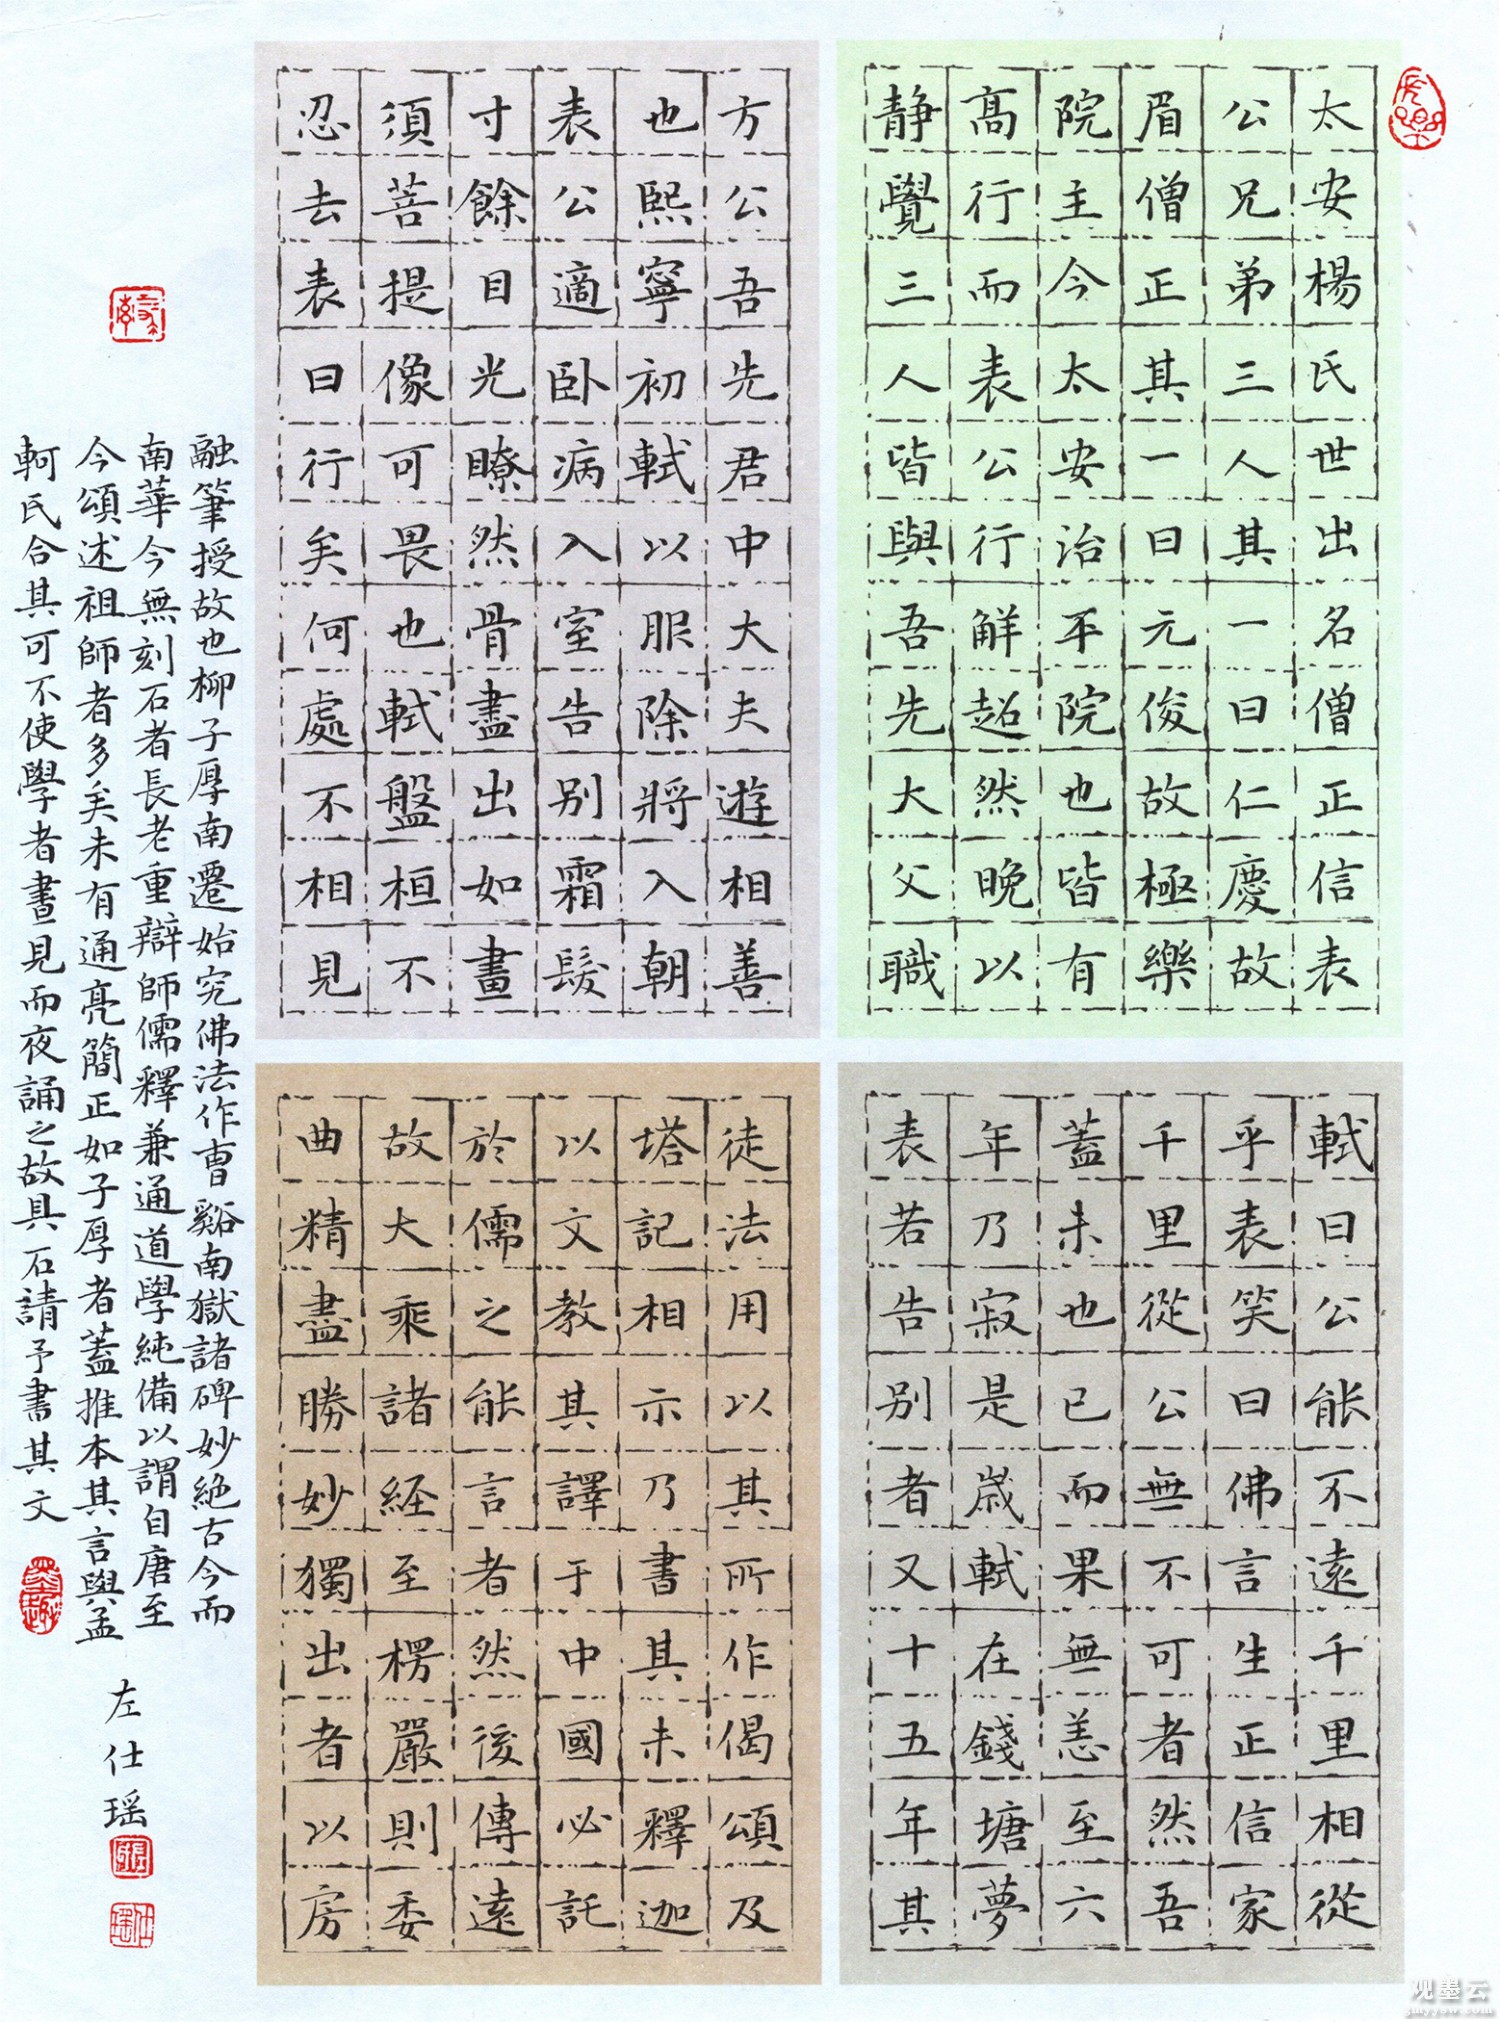 太安楊氏世出名僧正信表
公兄弟三人其一曰仁慶故
眉僧正其一曰元俊故極樂
院主今太安治平院也皆有
高行而表公行解超然晚以
静覺三人皆與吾先大父職
方公吾先君中大夫遊相善
也熙寧初軾以服除將入朝
表公適卧病入室告别霜髮
寸餘目光瞭然骨盡出如畫
須菩提像可畏也軾盤桓不
忍去表曰行矣何處不相見
軾曰公能不遠千里相從
乎表笑曰佛言生正信家
千里從公無不可者然吾
蓋未也已而果無恙至六
年乃寂是歲軾在錢塘夢
表若告别者又十五年其
徒法用以其所作偈頌及
塔記相示乃書其末釋迦
以文教其譯于中國必託
於儒之能言者然後傳遠
故大乘諸經至楞嚴則委
曲精盡勝妙獨出者以房
融筆授故也柳子厚南遷始究佛法作曹谿南嶽諸碑妙絶古今而
南華今無刻石者長老重辯師儒釋兼通道學純備以謂自唐至
今頌述祖師者多矣未有通亮簡正如子厚者蓋推本其言與孟
軻氏合其可不使學者晝見而夜誦之故具石請予書其文
左仕瑶
观墨云